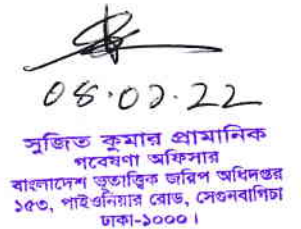 08.02.22
সুজিত কুমার প্রামানিক
গবেষণা অফিসার
বাংলাদেশ ভূতাত্ত্বিক জরিপ অধিদপ্তর
১৫৩, পাইওনিয়ার রোড, সেগুনবাগিচা
ঢাকা-১০০০।